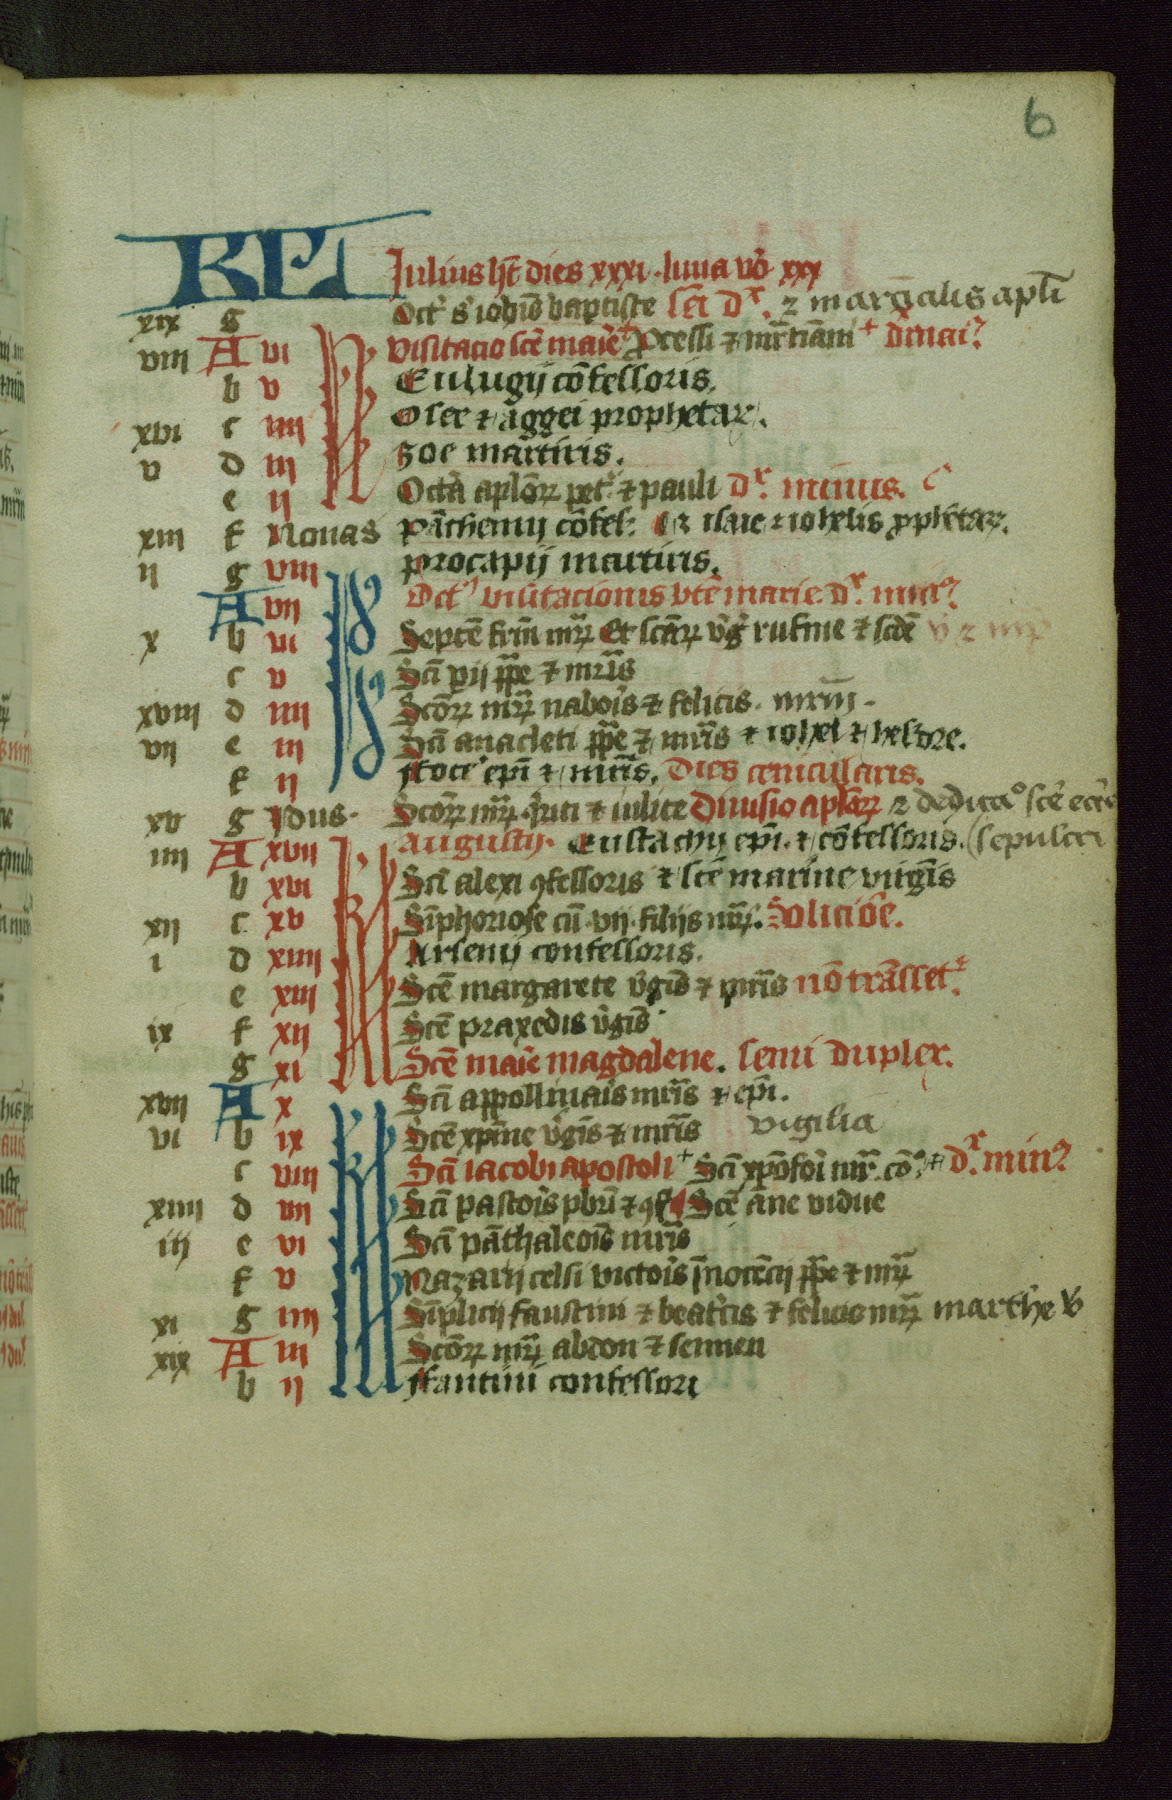 6
KL Iulius ht̄ dies xxxi · luna vō xxx
xix g Oct' s' ioh̄is baptiste sēi dx. 2 marcialis apl̄i
viii A vi Visitacio scē maīe + Pcessi ⁊ mr̄tiāni +
b v Eulugij cōfessoris.
xvi c iiii Osee ⁊ aggei prophetar̄.
v d iii Zoe martiris.
e ii Octā aplōꝝ pet' ⁊ pauli dx. minus.
xiii f Nonas Pātheny cōfes: ⁊ isaie ⁊ iohelis ꝓphetaꝝ.
ii g viii Procapij martiris.
A vii Oct' visitacionis btē marie. dx. min9
x b vi Septē frm̄ mr̄ꝝ Et scāꝝ v̄g rufine ⁊ scd̄e
c v Scī pij pp̄e ⁊ mr̄is
xviii d iiii Scōꝝ mr̄ꝝ nabois ⁊ felicis. mr̄m̄.
vii e iii Scī anacleti pp̄e ⁊ mr̄is ⁊ iohel ⁊ hesdre.
f ii ffoce ep̄i ⁊ mr̄is. Dies caniculares.
xv g Idus. Scōꝝ mr̄ꝝ q̄riti ⁊ iulite Diuisio aplōꝝ 2 dedicaº scē eccē
iiii A xvii Augusti. Eustachij ep̄i. ⁊ cōfessoris. (sepulcri
b xvi Scī alexi ꝯfessoris ⁊ scē marine virgīs
xii c xv Sīphorose cū vij filijs mr̄ꝝ. Sol i leōe.
i d xiiii Arsenij confessoris.
e xiii Scē margarete v̄gīs ⁊ mr̄is nō trāsfet'.
ix f xii Scē praxedis v̄gīs
g xi Scē maīe magdalene. semi duplex.
xvii A x Scī appollinaīs mr̄is ⁊ ep̄i.
vi b ix Scē xp̄ine v̄gīs ⁊ mr̄is vigilia
c viii Scī iacobi apostoli + Scī xp̄ofoī mr̄. cō. dx. min9
xiiii d vii Scī pastoīs pbr̄i ⁊ ꝯf Scē ane vidue
iij e vi Scī pāthaleoīs mr̄is
f v Nazarij celsi victoīs īnocēcij pp̄e ⁊ mr̄ꝝ
xi g iiii Sīplicij faustini ⁊ beat'cis ⁊ felicis mr̄ꝝ marthe v̄
xix A iii Scōꝝ mr̄ꝝ abdon ⁊ sennen
b ii ffantini confessori